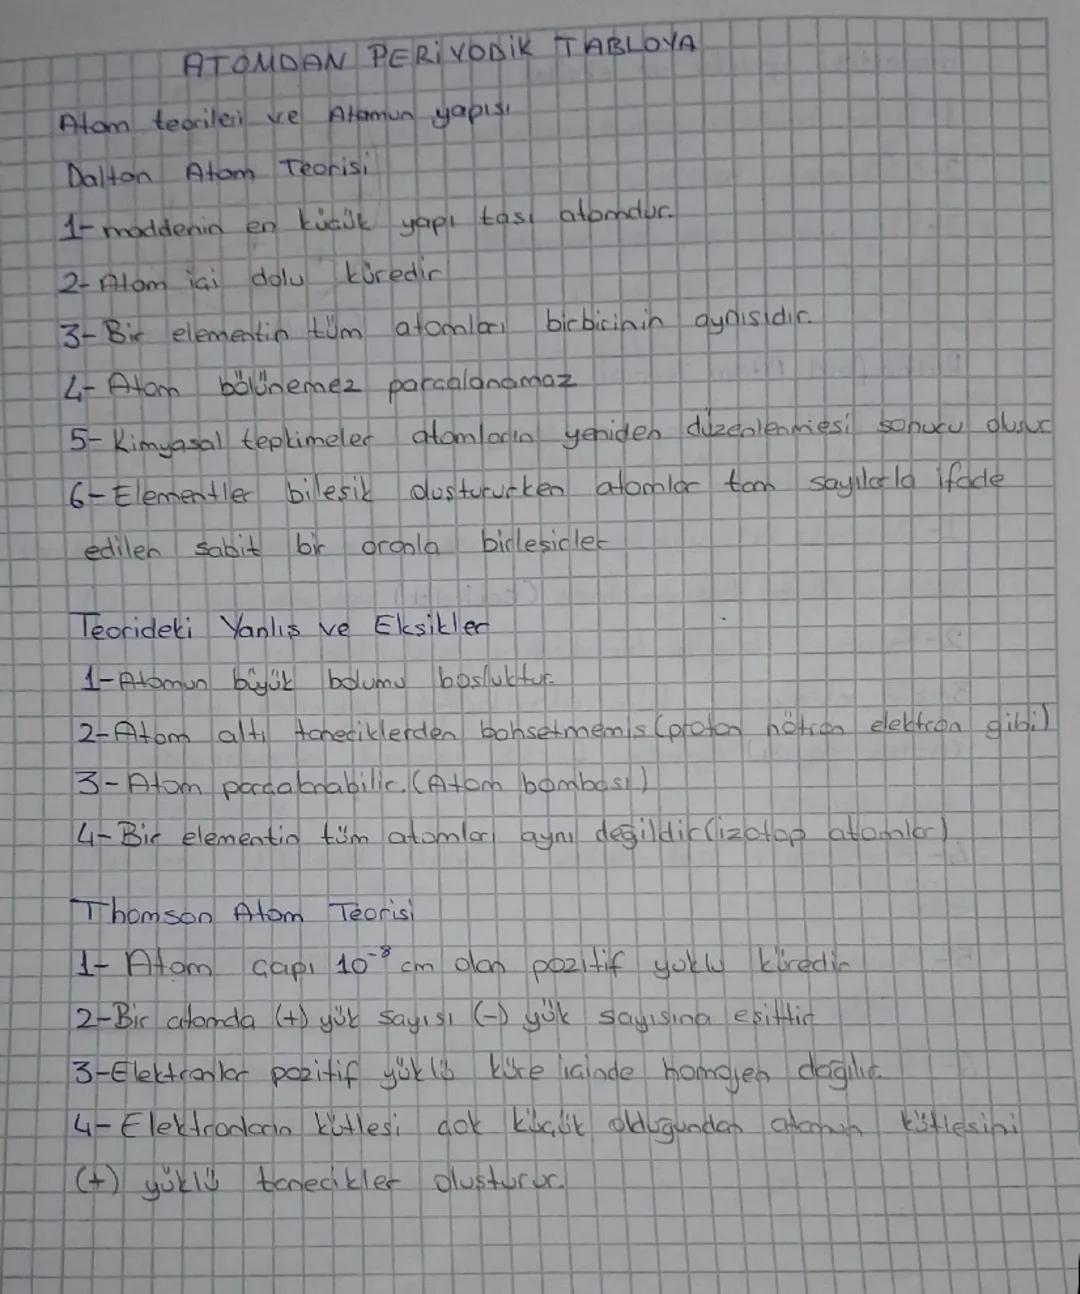 ATOMDAN PERİYODİK TABLOYA
Atom teorileri ve Atomun yapısı
Dalton Atom Teorisi
1- maddenin en küçük yapı tası atomdur.
2- Atom içi dolu küredir
3- Bir elementin tüm atomları birbirinin aynısıdır.
4- Atom bölünemez parçalanamaz
5- Kimyasal tepkimeler atomların yeniden düzenlenmesi sonucu olusur
6- Elementler bilesik olustururken atomlar tam sayılarla ifade
edilen sabit bir oranla birlesirler
Teorideki Yanlış ve Eksikler
1- Atomun büyük bolumu bosluktur.
2- Atom altı taneciklerden bahsetmemis (proton nötron elektron gibi)
3- Atom parçalanabilir. (Atom bombası)
4- Bir elementin tüm atomları aynı değildir (izotop atomlar)
Thomson Atom Teorisi
1- Atom çapı 10⁻⁸ cm olan pozitif yüklu küredir
2- Bir atomda (+) yük sayısı (-) yük sayısına esittir
3- Elektronlar pozitif yüklü küre icinde homojen dağılır.
4- Elektronların kütlesi çok küçük olduğundan atomun kütlesini
(+) yüklü tanecikler oluşturur.